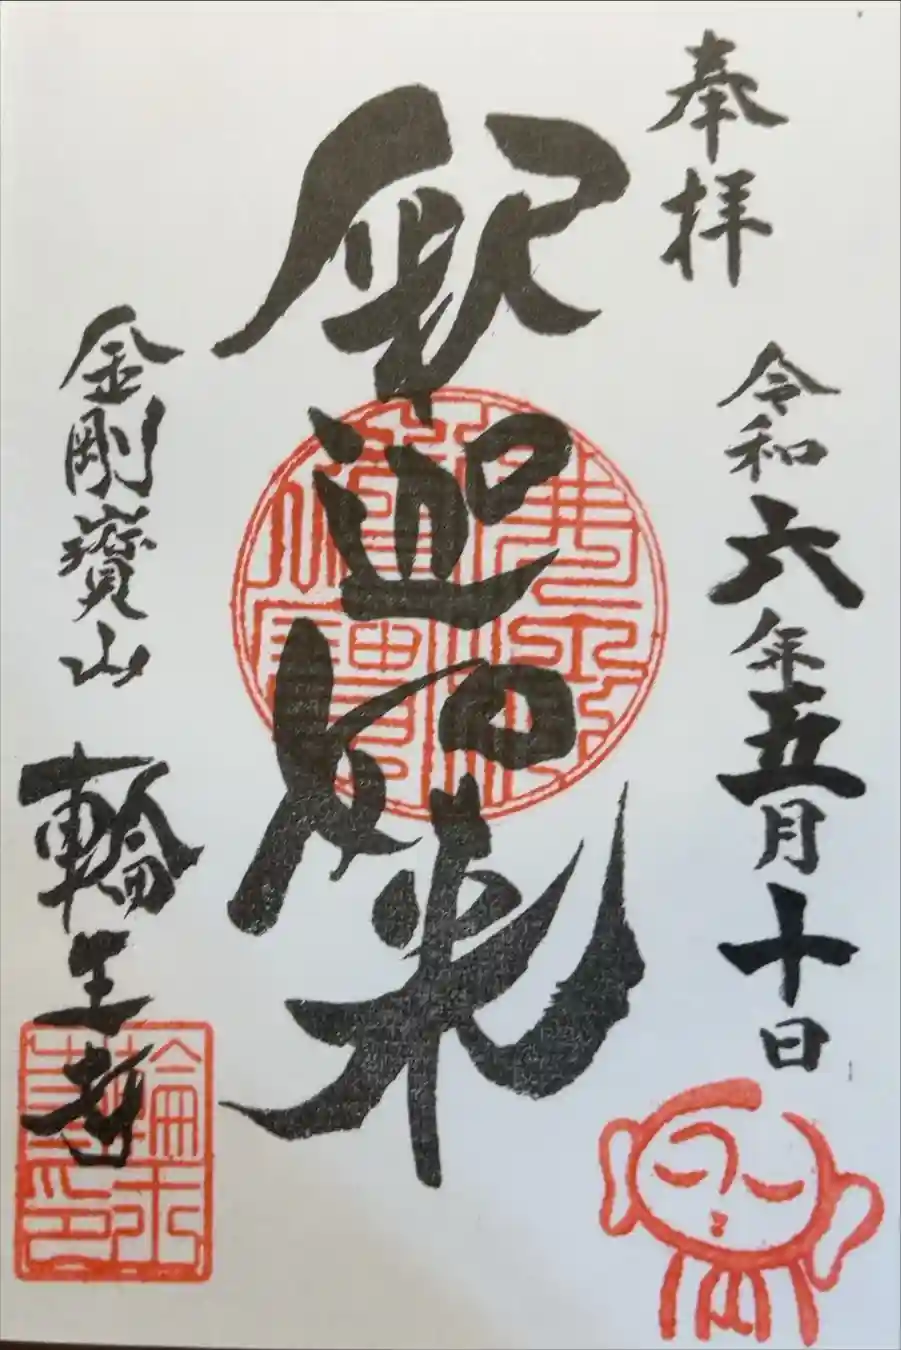 奉拝
令和六年五月十日
釈迦如来
金剛寶山
輪王寺